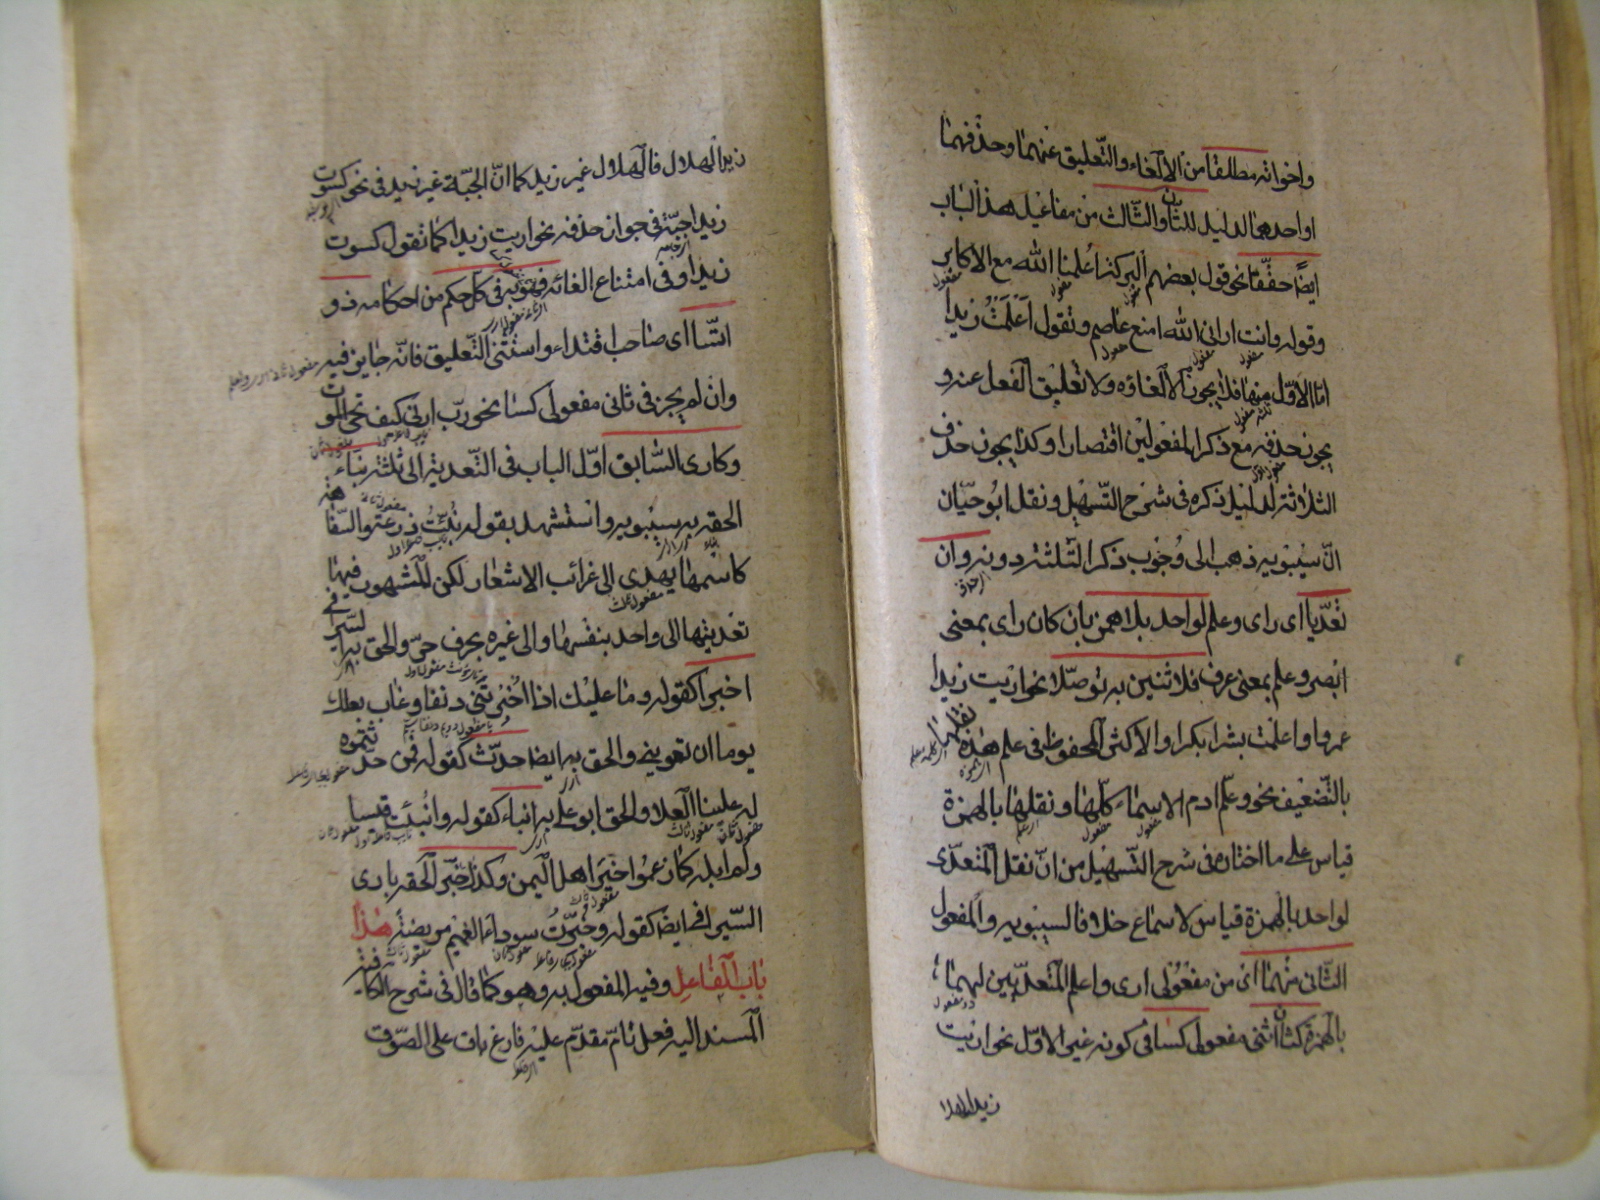 واخواته مطلقا من الالغاء والتعليق عنهما وحذفهما
او احدهما لدليل للثان والثالث من مفاعيل هذا الباب
ايضا حققا نحو قول بعضهم البركة اعلمنا الله مع الاكابر
وقوله وانت اراني الله امنع عاصم وتقول اعلمت زيدا
اما الاول منها فلا يجوز الالغاؤه ولا تعليق الفعل عنه و
يجوز حذفه مع ذكر المفعولين اقتصارا وكذا يجوز حذف
الثلاثة لدليل ذكره في شرح التسهيل ونقل ابو حيان
ان سيبويه ذهب الى وجوب ذكر الثلثة دونه وان
تعديا اى راى وعلم لواحد بلا همز بان كان راى بمعنى
ابصر وعلم بمعنى عرف فلاثنين به توصلا نحو اريت زيدا
عمروا واعلمت بشرا بكرا والاكثر المحفوظ في علم هذه نقلها
بالتضعيف نحو وعلم ادم الاسماء كلها ونقلها بالهمزة
قياس على ما اختاره في شرح التسهيل من ان نقل المتعدى
لواحد بالهمزة قياس لا سماع خلافا لسيبويه والمفعول
الثانى منهما اى من مفعولى ارى واعلم المتعديين لهما
بالهمزة كثان اثنى مفعولى كسا فى كونه غير الاول نحو اريت
زيدا الهلا
زيدا الهلال فالهلال غير زيد كما ان الجبة غير زيد في نحو كسوت
زيدا جبة وفى جواز حذفه نحو اريت زيدا كما تقول كسوت
زيدا وفى امتناع الغائه فهو به في كل حكم من احكامه ذو
ائتسا اى صاحب اقتداء واستثنى التعليق فانه جايز فيه
وان لم يجز في ثانى مفعولى كسا نحو رب ارنى كيف تحى الموتى
وكارى السابق اول الباب فى التعدية الى ثلثة نباء
الحقه به سيبويه واستشهد بقوله نبئت زرعة والسفاهة
كاسمها يهدى الى غرائب الاشعار لكن المشهور فيها
تعديتها الى واحد بنفسها والى غيره بحرف جر والحق به السيرافى
اخبرا كقوله وما عليك اذا اخبرتنى دنفا وغاب بعلك
يوما ان تعودينى والحق به ايضا حدث كقوله فمن حدثتموه
له علينا العلا والحق ابو على به انباء كقوله وانبئت قيسا
ولم ابله كما زعموا خير اهل اليمن وكذا خبر الحقه بارى
السيرافى ايضا كقوله وخبرت سوداء الغميم مريضة هذا
باب الفاعل وفيه المفعول به وهو كما قال فى شرح الكافية
المسند اليه فعل تام مقدم عليه فارغ باق على الصوغ